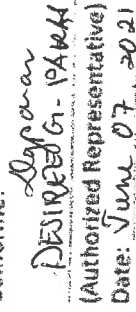 Conforme:
DESIREE G. PARRA
(Authorized Representative)
Date: June 07, 2021